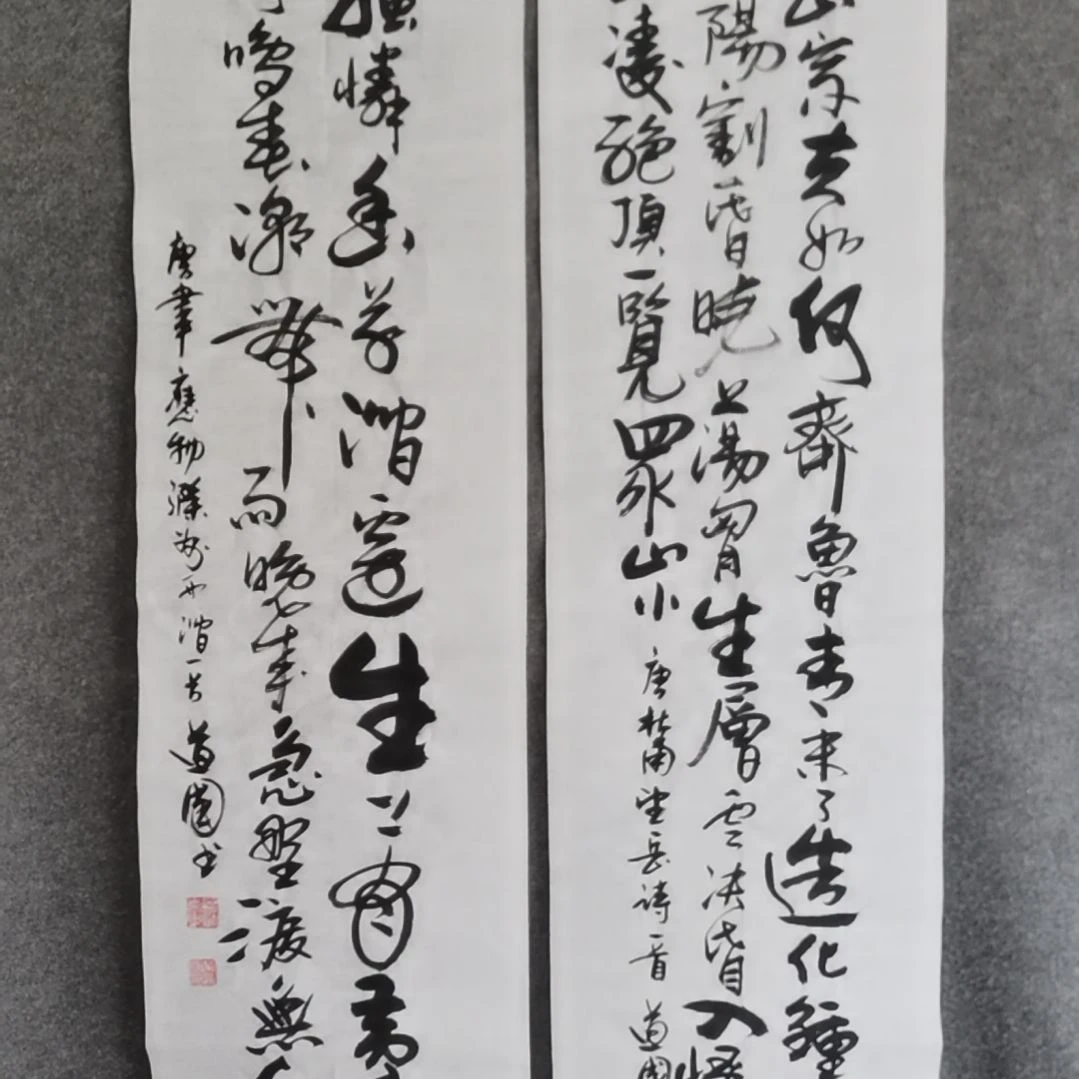 宗夫如何齊魯青未了造化鍾
陽割昏曉蕩胷生層雲決眥入
凌絕頂一覽眾山小
唐杜甫望岳詩一首 道
獨憐幽草澗邊生上有黃
鳴春潮帶雨晚來急野渡無
唐韋應物滁州西澗一首 道 書